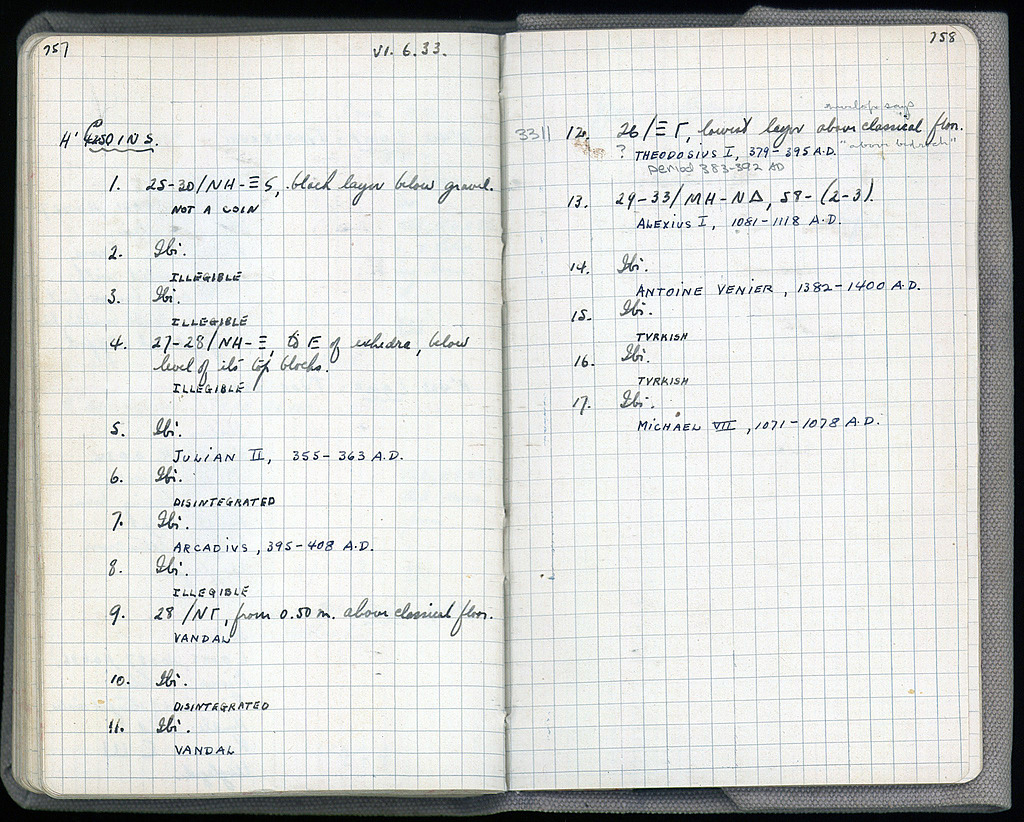 757
VI. 6. 33.
H' COINS.
1. 25-30/NH-ΞS, black layer below gravel.
NOT A COIN
2. Ibi.
ILLEGIBLE
3. Ibi.
ILLEGIBLE
4. 27-28/NH-Ξ, to E of exhedra, below
level of its top blocks.
ILLEGIBLE
5. Ibi.
JULIAN II, 355-363 A.D.
6. Ibi.
DISINTEGRATED
7. Ibi.
ARCADIUS, 395-408 A.D.
8. Ibi.
ILLEGIBLE
9. 28/NΓ, from 0.50 m. above classical floor.
VANDAL
10. Ibi.
DISINTEGRATED
11. Ibi.
VANDAL
758
envelope says
3311 12. 26/ΞΓ, lowest layer above classical floor.
? THEODOSIUS I, 379-395 A.D. "above bedrock"
period 383-392 AD
13. 29-33/MH-NΔ, 58-(2-3).
ALEXIUS I, 1081-1118 A.D.
14. Ibi.
ANTOINE VENIER, 1382-1400 A.D.
15. Ibi.
TURKISH
16. Ibi.
TURKISH
17. Ibi.
MICHAEL VII, 1071-1078 A.D.